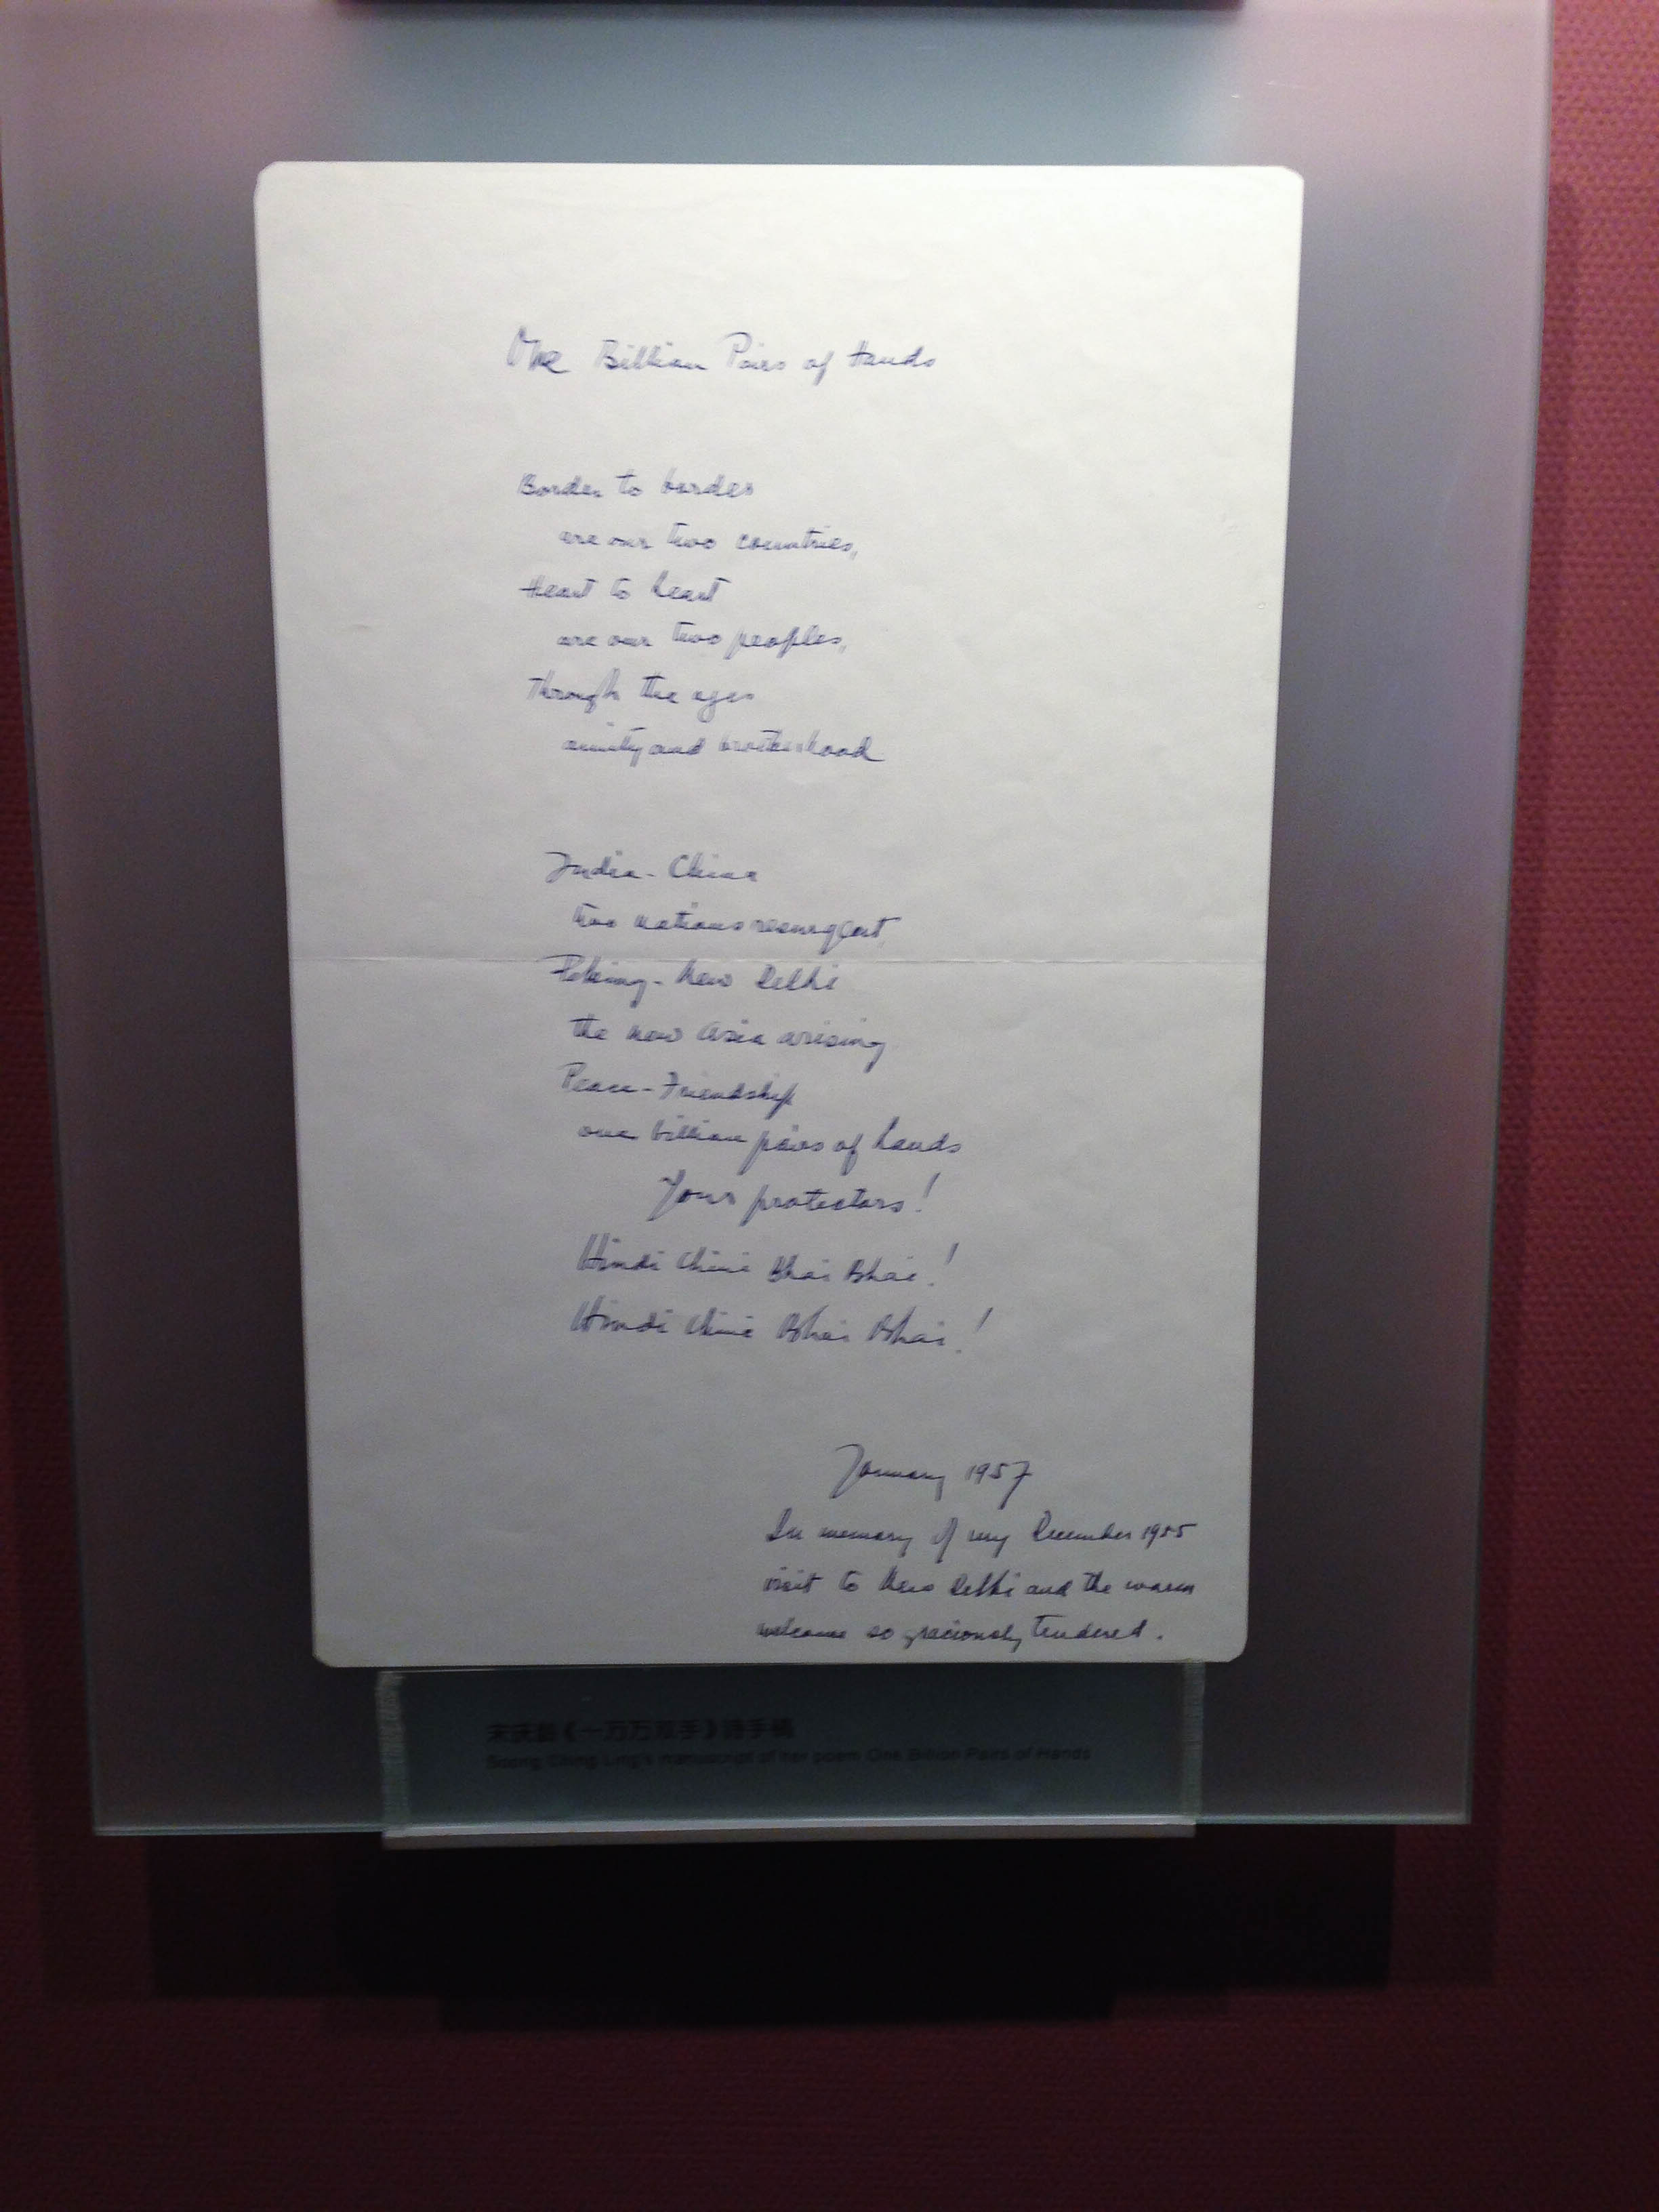 One Billion Pairs of Hands
Border to border
are our two countries,
Heart to heart
are our two peoples,
Through the ages
amity and brotherhood
India - China
two nations resurgent,
Peking - New Delhi
the new Asia arising
Peace - Friendship
one billion pairs of hands
Your protectors!
Hindi Chini Bhai Bhai!
Hindi Chini Bhai Bhai!
January 1957
In memory of my December 1955
visit to New Delhi and the warm
welcome so graciously tendered.
宋庆龄《一万万双手》诗手稿
Soong Ching Ling's manuscript of her poem One Billion Pairs of Hands